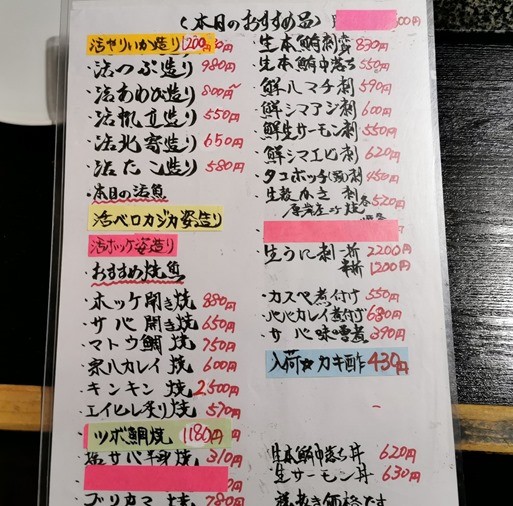 (本日のおすすめ品)
活ヤリいか造り 1200円
・活つぶ造り 980円
・活あわび造り 800円~
・活帆立造り 550円
・活北寄造り 650円
・活たこ造り 580円
・本日の活魚
活ベロカジカ姿造り
活ホッケ姿造り
・おすすめ焼魚
・ホッケ開き焼 880円
・サバ開き焼 650円
・マトウ鯛焼 750円
・宗八カレイ焼 600円
・キンキン焼 2,500円
・エイヒレ炙り焼 570円
ツボ鯛焼 1180円
塩サバ半身焼 310円
ブリカマ焼 780円
・生本鮪刺 830円
・生本鮪中落ち 550円
・鮮ハマチ刺 590円
・鮮シマアジ刺 600円
・鮮生サーモン刺 550円
・鮮シマエビ刺 620円
・タコボッチ(頭)刺 450円
・生殻かき 刺
厚岸産 焼 各520円
・生うに刺一折 2200円
半折 1200円
・カスベ煮付け 550円
・ババカレイ煮付け 680円
・サバ味噌煮 390円
入荷☆カキ酢 430円
・生本鮪中落ち丼 620円
・生サーモン丼 630円
税抜き価格です